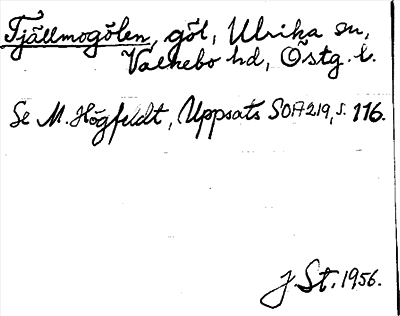 Tjällmogölen, göl, Ulrika sn,
Valkebo hd, Östg. l.
Se M. Högfeldt, Uppsats SOA 219, s. 116.
J. St. 1956.